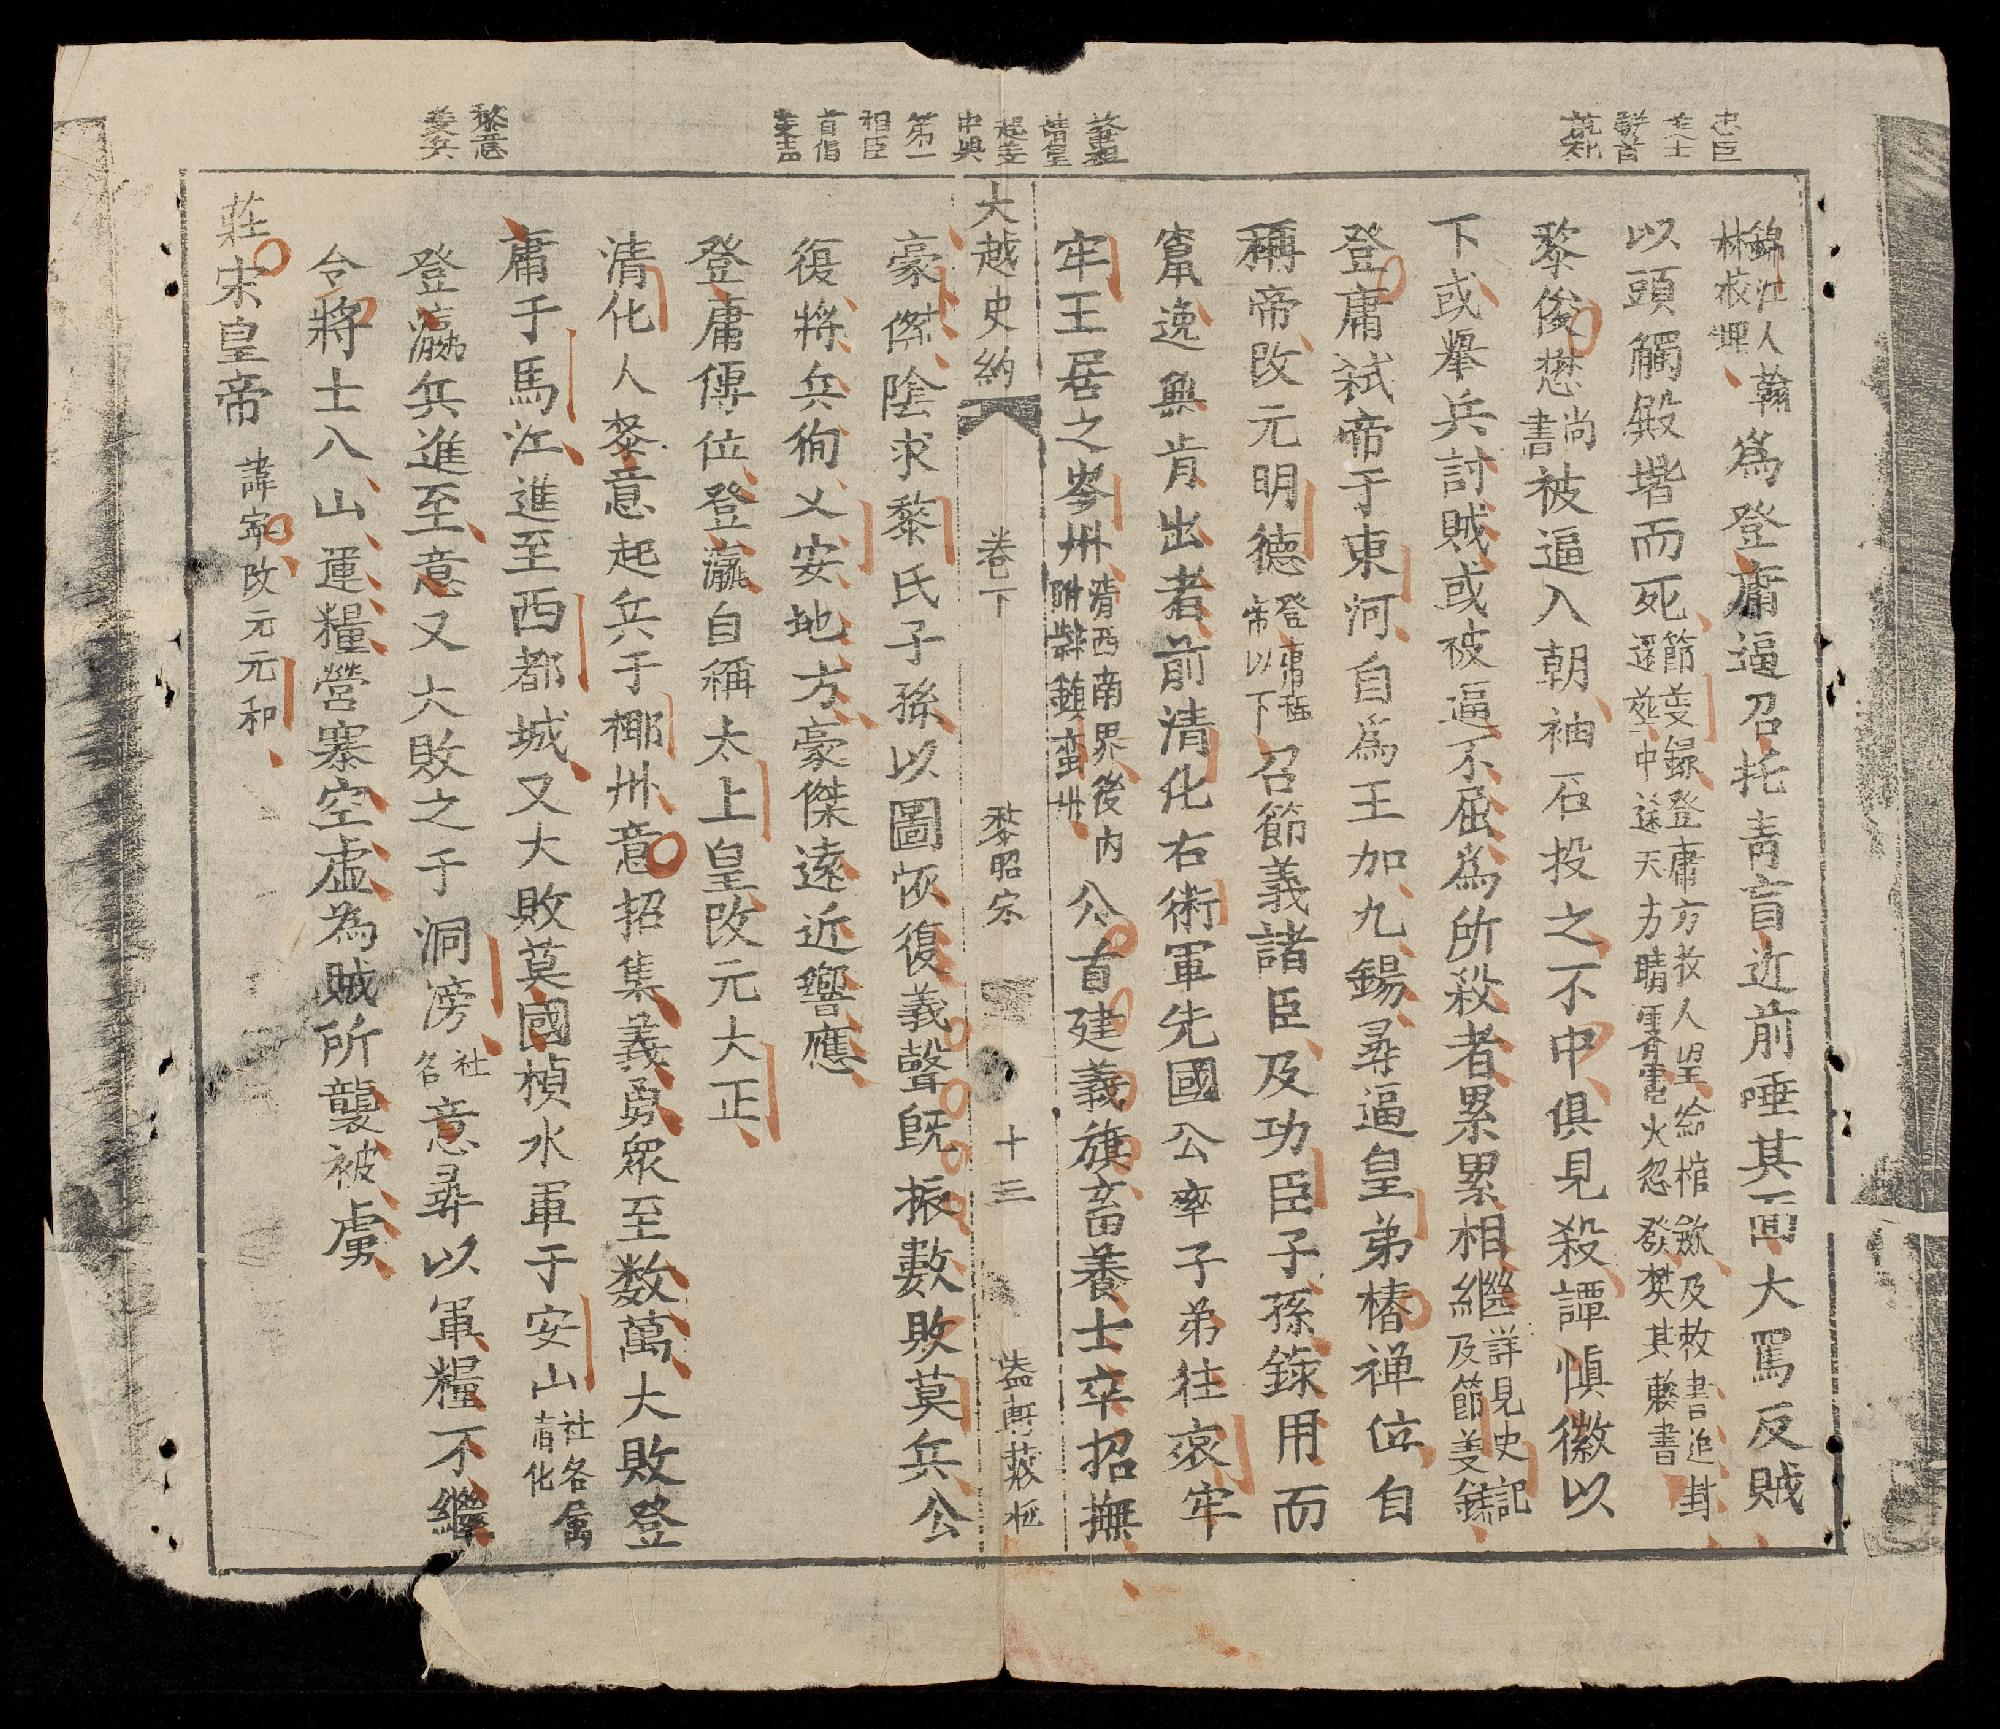 忠臣
走士
錦江人翰林校理、為登庸逼召托靑盲近前唾其面大罵反賊
以頭觸殿堦而死節義錄登庸方敎人具給棺斂及敕書追封還葬中途天方晴雲雷電火忽發焚其敕書
黎俊懋尚書被逼入朝袖石投之不中俱見殺譚愼徽以
下或舉兵討賊或被逼不屈為所殺者累累相繼詳見史記及節義錄
登庸弒帝于東河自為王加九錫尋逼皇弟椿禅位自
稱帝改元明德登庸稱帝以下召節義諸臣及功臣子孫錄用而
竄逸無肯出者前清化右衛軍先國公率子弟往哀牢
牢王居之岑州清西南界後内附辭鎮蛮州公首建義旗畜養士卒招撫
大越史約 卷下 黎昭宗 十三
豪傑陰求黎氏子孫以圖恢復義聲既振數敗莫兵公
復將兵徇乂安地方豪傑遠近響應
登庸傳位登瀛自稱太上皇改元大正
清化人黎意起兵于榔州意招集義勇衆至数萬大敗登
庸于馬江進至西都城又大敗莫國楨水軍于安山社名屬清化
登瀛兵進至意又大敗之于洞滂社名意尋以軍糧不繼
令將士入山運糧營寨空虛為賊所襲被虜
莊宗皇帝 諱寧改元元和
肇祖
靖皇
起義
中興
第一
相臣
首倡
義声
黎意
義兵